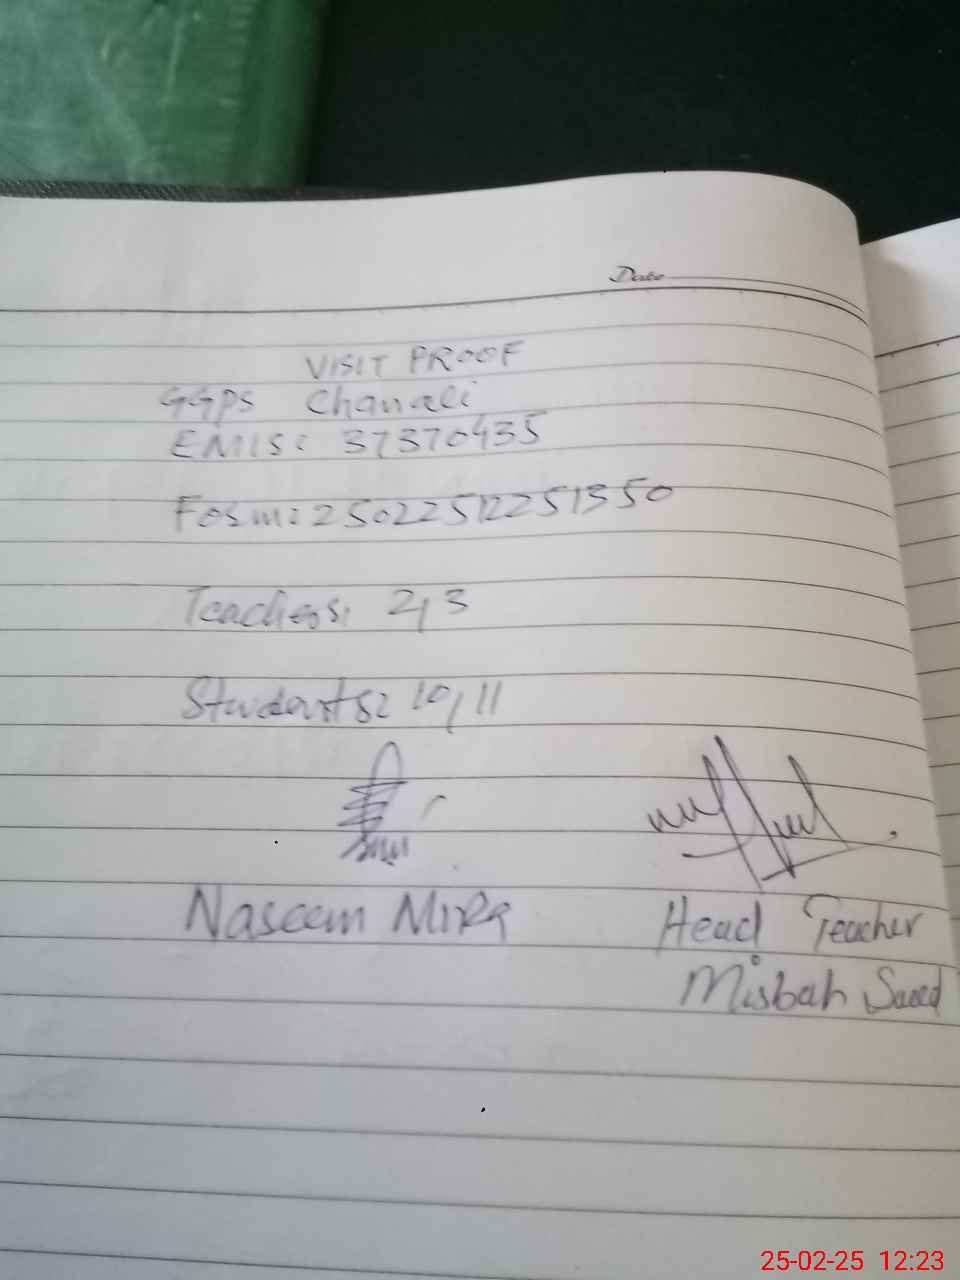 Date
VISIT PROOF
GGPS Chanali
EMIS: 37370435
Form: 25022512251350
Teachers: 2,3
Students: 10,11
Naseem Mirq
Head Teacher
Misbah Saeed
25-02-25 12:23